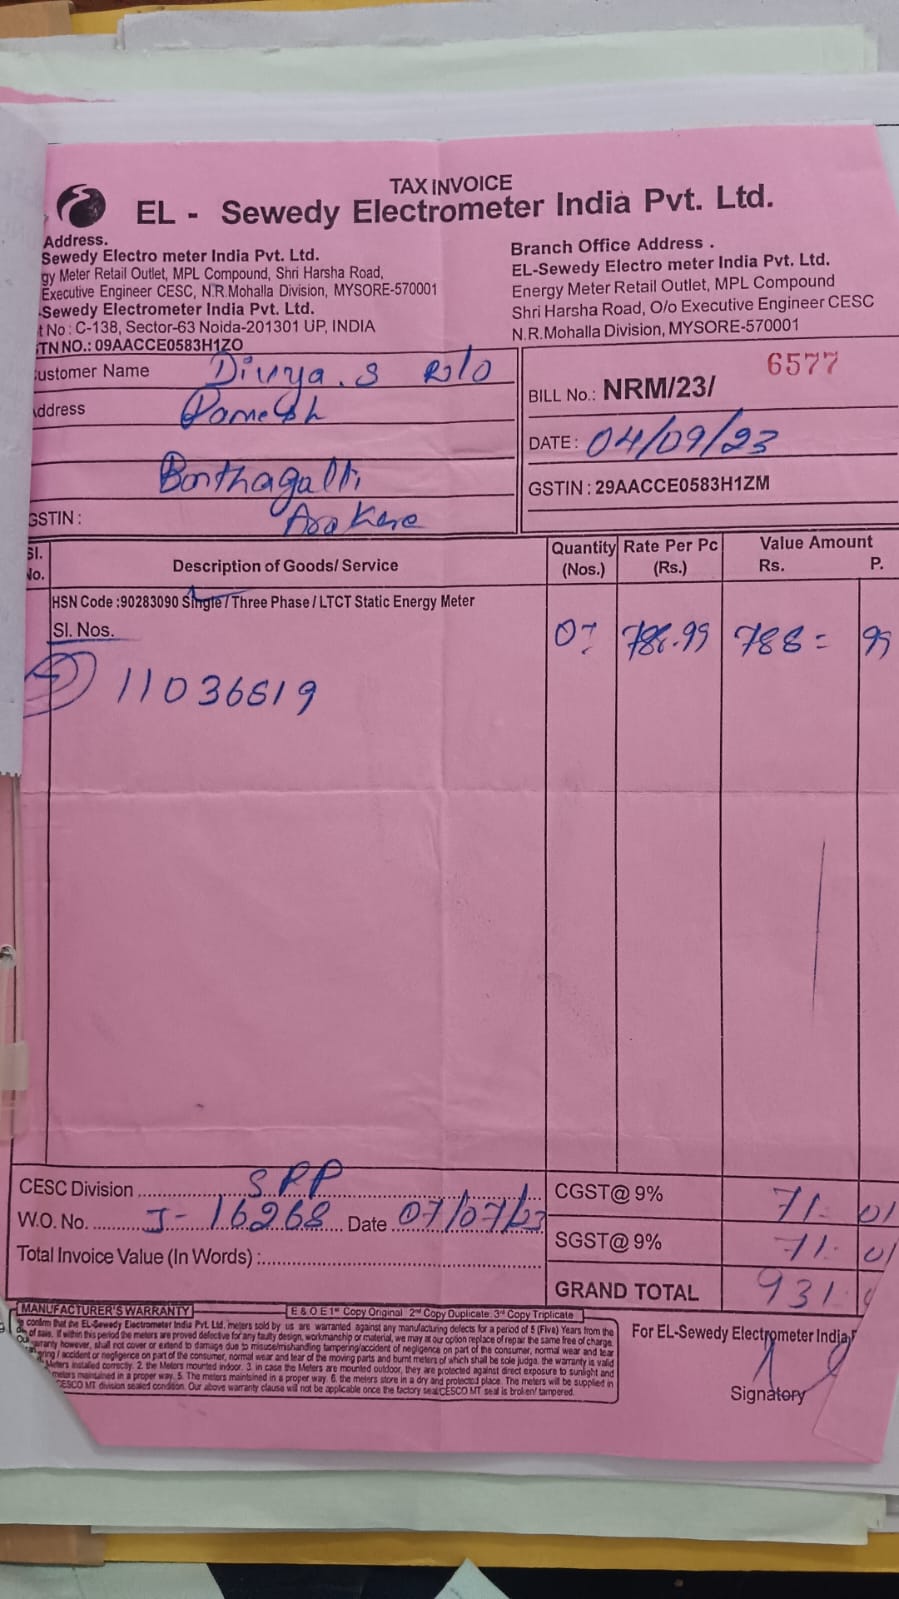 TAX INVOICE
EL - Sewedy Electrometer India Pvt. Ltd.
Address.
Sewedy Electro meter India Pvt. Ltd.
gy Meter Retail Outlet, MPL Compound, Shri Harsha Road,
Executive Engineer CESC, N.R.Mohalla Division, MYSORE-570001
-Sewedy Electrometer India Pvt. Ltd.
t No : C-138, Sector-63 Noida-201301 UP, INDIA
STN NO.: 09AACCE0583H1ZO
Branch Office Address .
EL-Sewedy Electro meter India Pvt. Ltd.
Energy Meter Retail Outlet, MPL Compound
Shri Harsha Road, O/o Executive Engineer CESC
N.R.Mohalla Division, MYSORE-570001
ustomer Name Divya . S
ddress Ramesh
GSTIN : Arakere
6577
BILL No.: NRM/23/
DATE : 04/09/23
GSTIN : 29AACCE0583H1ZM
Sl. No. Description of Goods/ Service Quantity (Nos.) Rate Per Pc (Rs.) Value Amount Rs. P.
HSN Code :90283090 Single / Three Phase / LTCT Static Energy Meter
Sl. Nos. 788.99 788 = 99
11036619
CESC Division SRP
W.O. No. J-16268 Date 07/07/23
Total Invoice Value (In Words) :
CGST@ 9% 71. 01
SGST@ 9% 71. 01
GRAND TOTAL 931.
MANUFACTURER'S WARRANTY E & O E 1st Copy Original 2nd Copy Duplicate 3rd Copy Triplicate
confirm that the EL-Sewedy Electrometer India Pvt. Ltd. meters sold by us are warranted against any manufacturing defects for a period of 5 (Five) Years from the
of sale. If within this period the meters are proved defective for any faulty design, workmanship or material, we may at our option replace of repair the same free of charge.
warranty however, shall not cover or extend to damage due to misuse/mishandling tampering/accident of negligence on part of the consumer, normal wear and tear
ering / accident or negligence on part of the consumer, normal wear and tear of the moving parts and burnt meters of which shall be sole judge. the warranty is valid
Meters installed correctly. 2. the Meters mounted indoor. 3. in case the Meters are mounted outdoor, they are protected against direct exposure to sunlight and
meters maintained in a proper way. 5. The meters maintained in a proper way. 6. the meters store in a dry and protected place. The meters will be supplied in
CESCO MT division sealed condition. Our above warranty clause will not be applicable once the factory seal/CESCO MT seal is broken/ tampered.
For EL-Sewedy Electrometer India
Signatory